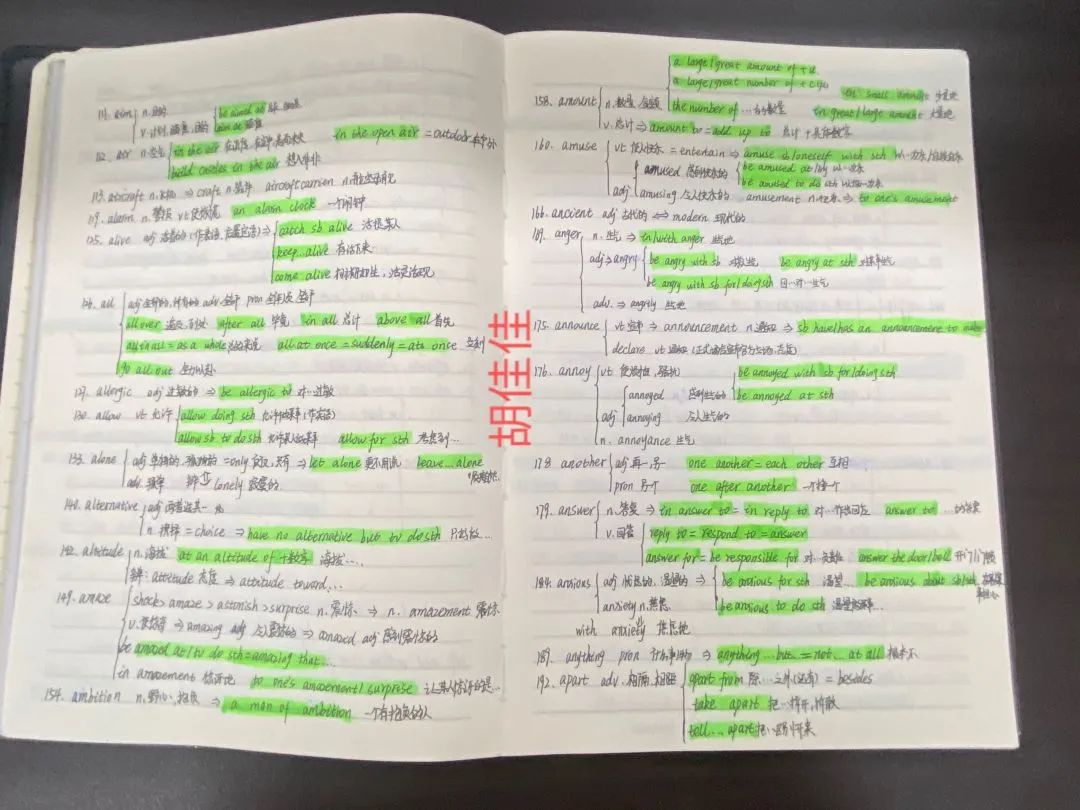 111. aim n.目的 be aimed at
v.计划,瞄准,目的 aim at 瞄准
112. air n.空气 in the air in the open air = outdoor 在户外
build castles in the air 想入非非
113. aircraft n. ⇒ craft n. aircraft carrier n.
119. alarm n.警报 vt an alarm clock 一个闹钟
125. alive adj 活着的 ⇒ catch sb alive 活捉某人
keep...alive 有活下来
come alive 栩栩如生,活灵活现
126. all adj 全部的,所有的 adv. pron
all over after all 毕竟 in all 总计 above all 首先
all in all = as a whole all at once = suddenly = at once 立刻
go all out 全力以赴
127. allergic adj 过敏的 ⇒ be allergic to 对…过敏
130. allow vt 允许 allow doing sth 允许做某事
allow sb to do sth 允许某人做某事 allow for sth 考虑到…
133. alone adj 单独的, = only ⇒ let alone 更不用说 leave...alone
adv. 独自 lonely 寂寞的
140. alternative adj 两者选其一
n 选择 = choice ⇒ have no alternative but to do sth 只好做…
142. altitude n.海拔 at an altitude of +数字 海拔…
辨: attitude 态度 ⇒ attitude toward...
149. amaze shock > amaze > astonish > surprise n.震惊 ⇒ n. amazement 震惊
v.使惊奇 ⇒ amazing adj 令人震惊的 ⇒ amazed adj 感到震惊的
be amazed at / to do sth = amazing that...
in amazement 惊讶地 to one's amazement / surprise 让某人惊讶的是…
154. ambition n.野心,抱负 ⇒ a man of ambition 一个有抱负的人
a large/great amount of + u
a large/great number of + c
158. amount n.数量 the number of …的数量 in small amounts 少量地
in great/large amount 大量地
v.总计 ⇒ amount to = add up to 总计 +具体数字
160. amuse vt = entertain ⇒ amuse sb/oneself with sth
adj amused be amused at/by
be amused to do sth
amusing 令人快乐的 amusement n. ⇒ to one's amusement
166. ancient adj 古代的 ⇔ modern 现代的
189. anger n.生气 ⇒ in/with anger 生气地
adj ⇒ angry be angry with sb 对某人生气 be angry at sth 对某事生气
be angry with sb for/doing sth 因…对…生气
adv. ⇒ angrily 生气地
175. announce vt 宣布 ⇒ announcement n.通知 ⇒ sb have/has an announcement to make
declare vt
176. annoy vt be annoyed with sb for/doing sth
adj annoyed be annoyed at sth
annoying 令人生气的
n. annoyance 生气
178 another adj 再一,另一 one another = each other 互相
pron 另一个 one after another 一个接一个
179. answer n.答复 ⇒ in answer to = in reply to 对…作出回应 answer to …的答案
v.回答 reply to = respond to = answer
answer for = be responsible for 对…负责 answer the door/bell
184. anxious adj 忧虑的,渴望的 ⇒ be anxious for sth 渴望… be anxious about sb/sth
anxiety n.焦虑 be anxious to do sth 渴望做某事…
with anxiety 焦虑地
189. anything pron 任何事物 ⇒ anything...but = not...at all 根本不
192. apart adv. 相隔,相距 apart from 除…之外(还有) = besides
take apart 把…拆开,拆散
tell...apart 把…区分开来
胡佳佳